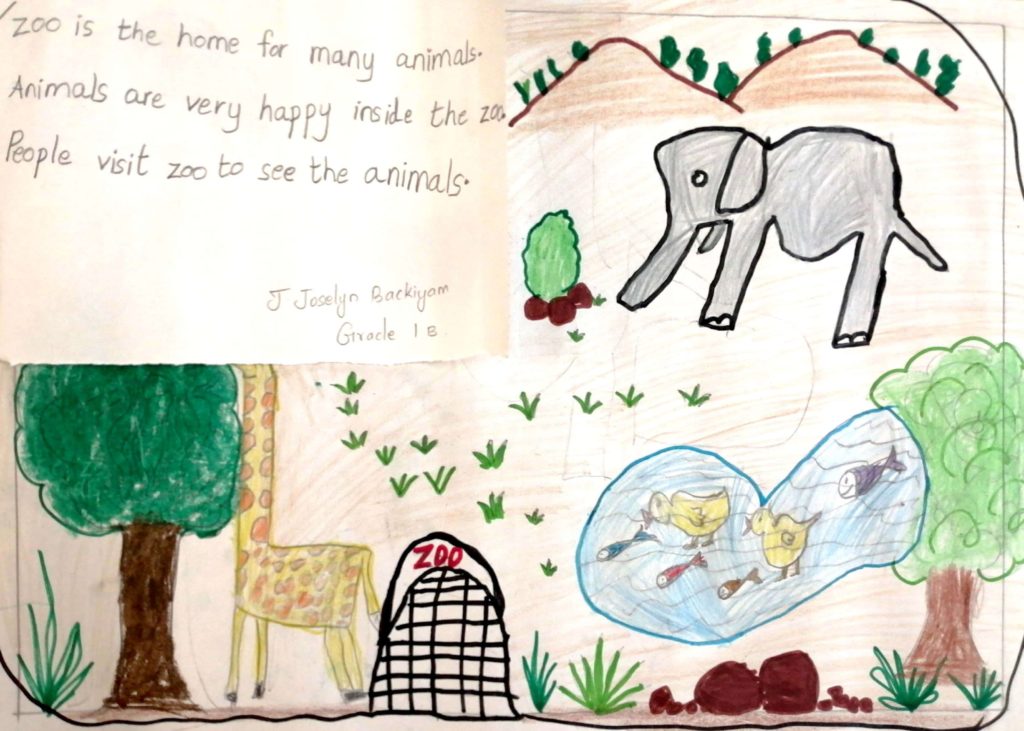 zoo is the home for many animals.
Animals are very happy inside the zoo.
People visit zoo to see the animals.
J Joselyn Backiyam
Grade 1 B.
ZOO